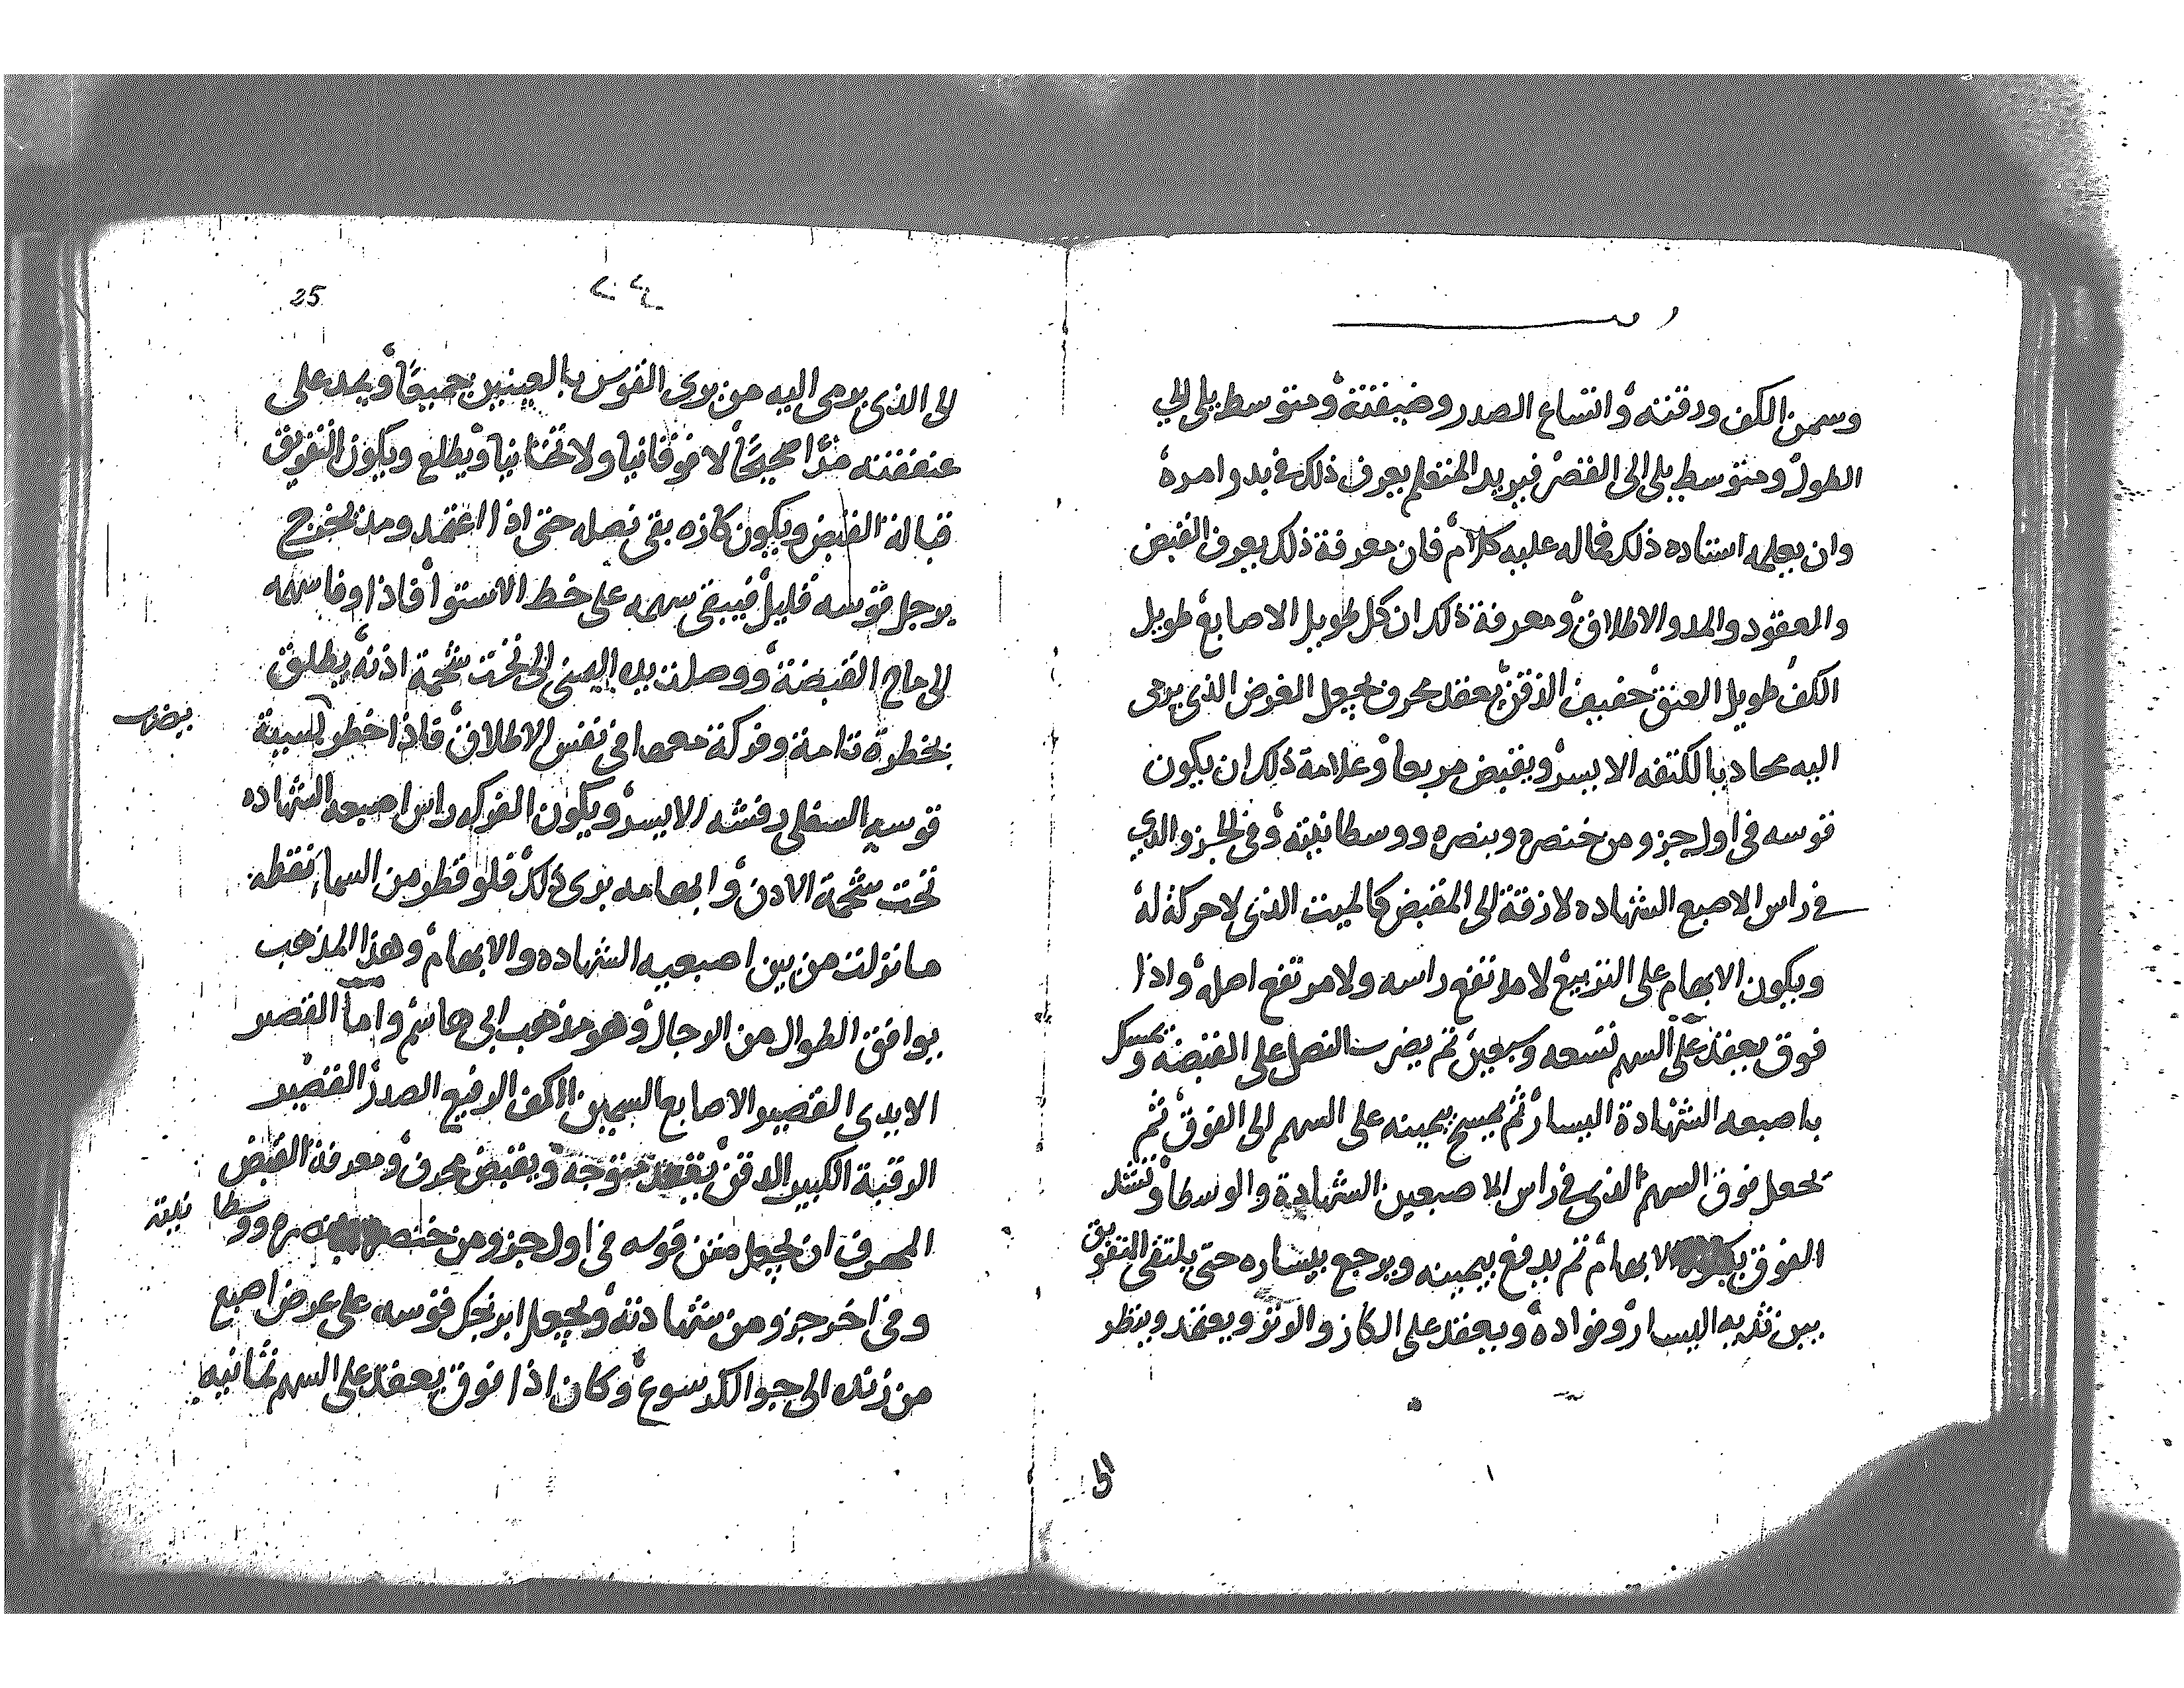 وسمن الكف ورقته واتساع الصدر وضيقته ومتوسط يلى الى
الطول ومتوسط يلى الى القصر فيريد المتعلم يعرف ذلك فى بدو امره
وان يعلمه استاده ذلك فماله عليه كلام فان معرفة ذلك يعرف القبض
والعقود والمد والاطلاق ومعرفة ذلك ان كل طويل الاصابع طويل
الكف طويل العنق خفيف الذقن يعقد محرف يجعل الغرض الذى يرمى
اليه محاديا لكتفه الايسر ويقبض مربعا وعلامة ذلك ان يكون
قوسه فى اول جزو من خنصره وبنصره ووسطانيته وفى الجزو الذي
فى راس الاصبع الشهاده لازقة الى المقبض كالميت الذى لا حركة له
ويكون الابهام على التربيع لا مرتفع راسه ولا مرتفع اصله واذا
فوق يعقد على السهم تسعه وسبعين ثم يضرب النصل على القبضة ويمسكل
باصبعه الشهادة اليسار ثم يمسح بيمينه على السهم الى الفوق ثم
يجعل فوق السهم الذى فى راس الاصبعين الشهادة والوسطا وتشد
الفوق الابهام ثم يدفع بيمينه ويرجع بيساره حتى يلتقى التفويق
بين ثديه اليسار وفواده ويعقد على الكاز والوتر ويعتمد وينظر
الى
٢٤
25
الى الذى يرمى اليه من يرى القوس بالعينين جميعا ويمد على
عنفقته مدا صحيحا لا فوقانيا ولا تحتانيا ويطلع ويكون التفويق
قبالة القبض ويكون كازه بقى نصله حتى اذا اعتمد ومد يخرج
يرجل قوسه قليل فيبقى سهمه على خط الاستوا فاذا وفا سهمه
الى ماح القبضة ووصلت يده اليمنى الى تحت شحمة اذنه يطلق
بخطره تامة وفركة معها فى نفس الاطلاق فاذا اخطر لسيية
يضرب
قوسه السفلى دفشه الايسر ويكون الفركه راس اصبعه الشهاده
تحت شحمة الادن وابهامه يرى ذلك فلو قطر من السماء نقطه
ما نزلت من بين اصبعيه الشهاده والابهام وهذا المذهب
يوافق الطوال من الرجال وهو مذهب ابى هاشم واما القصر
الايدى القصير الاصابع السمين الكف الرفيع الصدر القصير
الرقبة الكبير الدقن يعقد متوجه ويقبض محرف ومعرفة القبض
المحرف ان يجعل متن قوسه فى اول جزو من خنصره ووسطا نيته
وفى اخر جزو من شهادته ويجعل ابرنجك قوسه على عرض اصبع
من زنده الى جوا الكرسوع وكان اذا فوق يعقد على السهم ثمانيه